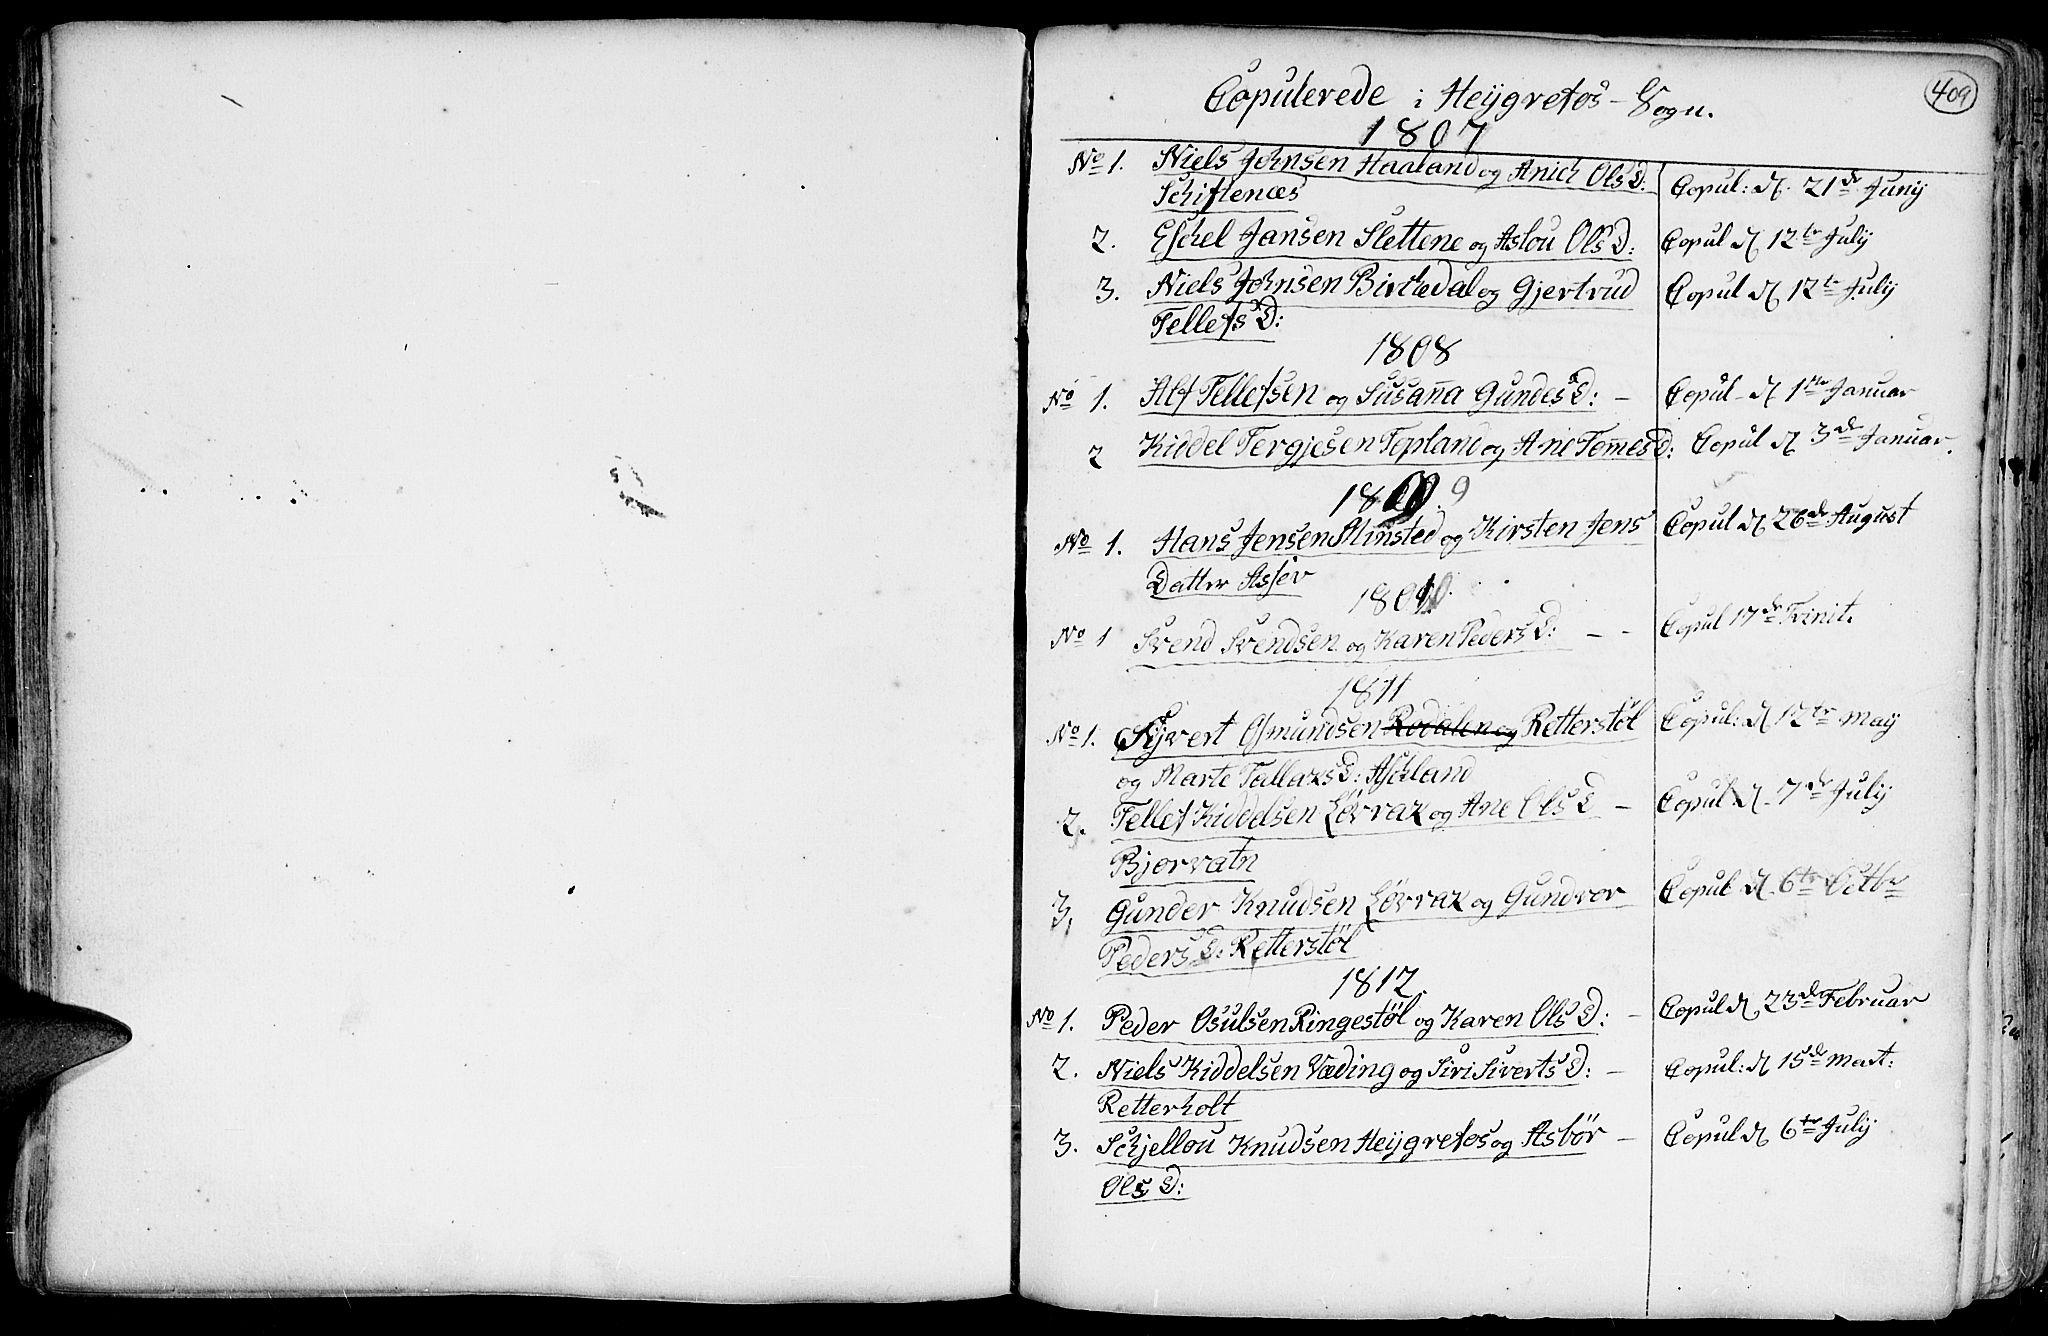 409
Copulerede i Heÿgrefos-Sogn.
1807
No 1. Niels Johnsen Haaland og Anich Ols D: Copul: d. 21de Junÿ
Schiftenæs
2. Eschel Jansen Slettene og Aslou Ols D: Copul d 12te Julÿ
3. Niels Johnsen Birkedal og Gjertrud Copul d 12te Julÿ
Tellefs D:
1808
No 1. Alf Tellefsen og Susana Gundes D: - Copul- d 1ste Januar
2 Kiddel Tergjesen Topland og Ane Tomes D: Copul d 3de Januar.
1809. 9
No 1. Hans Jensen Minsted og Kirsten Jens Copul d 26de August
Datter Assev
1810.
No 1 Svend Svendsen og Karen Peders D: - - Copul 17de Trinit.
1811
No 1. Syvert Osmundsen Rodalen og Retterstöl Copul: d 12te Maÿ
og Marte Tallaks D: Askland
2. Tellef Kiddelsen Lövrak og Ane Ols D - Copul: d. 7de Julÿ
Bjorvatn
3, Gunder Knudsen Lövrak og Gundvor Copul d. 6te Octbr
Peders D: Retterstöl
1812.
No 1. Peder Osulsen Ringestöl og Karen Ols D: - Copul d. 23de Februar
2. Niels Kiddelsen Væding og Siri Siverts D: - Copul: d 15de Mart:
Retterholt
3. Schjellou Knudsen Heÿgrefos og Asbör - Copul d 6te Julÿ
Ols D: